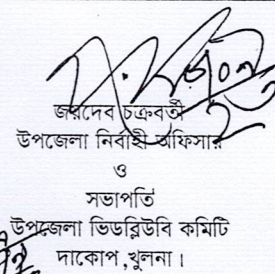 জয়দেব চক্রবর্তী
উপজেলা নির্বাহী অফিসার
ও
সভাপতি
উপজেলা ভিডব্লিউবি কমিটি
দাকোপ ,খুলনা।